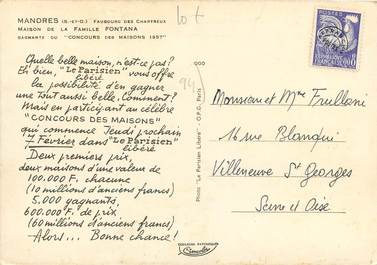 MANDRES (S.-ET-O.) FAUBOURG DES CHARTREUX
MAISON DE LA FAMILLE FONTANA
GAGNANTE DU "CONCOURS DES MAISONS 1957"
Quelle belle maison, n'est ce pas?
Eh bien, "Le Parisien libéré" vous offre
la possibilité d'en gagner
une tout aussi belle. Comment?
Mais en participant au célèbre
"CONCOURS DES MAISONS"
qui commence Jeudi prochain
7 Février dans "Le Parisien libéré"
Deux premiers prix,
deux maisons d'une valeur de
100.000 F. chacune
(10 millions d'anciens francs)
5.000 gagnants,
600.000 F. de prix
(60 millions d'anciens francs)
Alors... Bonne chance!
Photo "Le Parisien Libéré" - O.P.G. Paris
lot
Monsieur et Mme Fruillani
16 rue Blanqui
Villeneuve St Georges
Seine et Oise